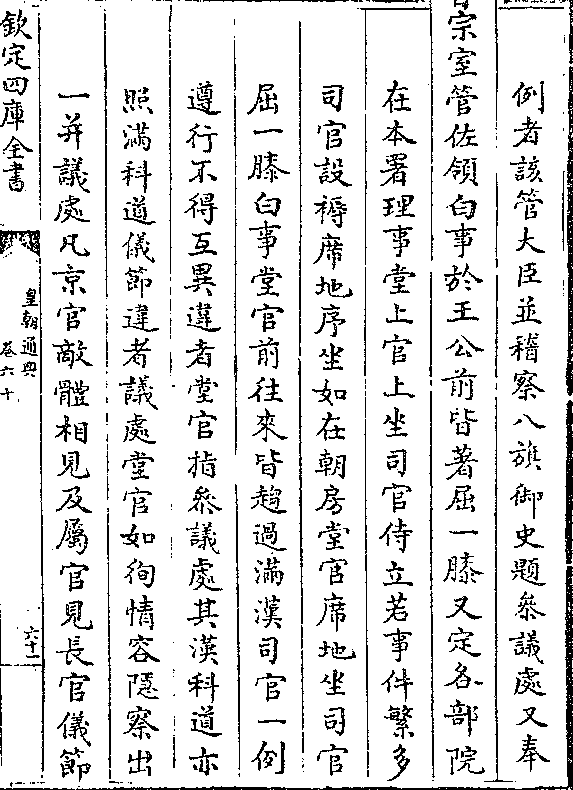 例者該管大臣並稽察八旗御史題叅議處又奉
旨宗室管佐領白事於王公前皆著屈一膝又定各部院
在本署理事堂上官上坐司官侍立若事件繁多
司官設褥席地序坐如在朝房堂官席地坐司官
屈一膝白事堂官前往來皆趨過滿漢司官一例
遵行不得互異違者堂官指叅議處其漢科道亦
照滿科道儀節違者議處堂官如徇情容隱察出
一并議處凡京官敵體相見及屬官見長官儀節
欽定四庫全書
皇朝通典
卷六十
六十一